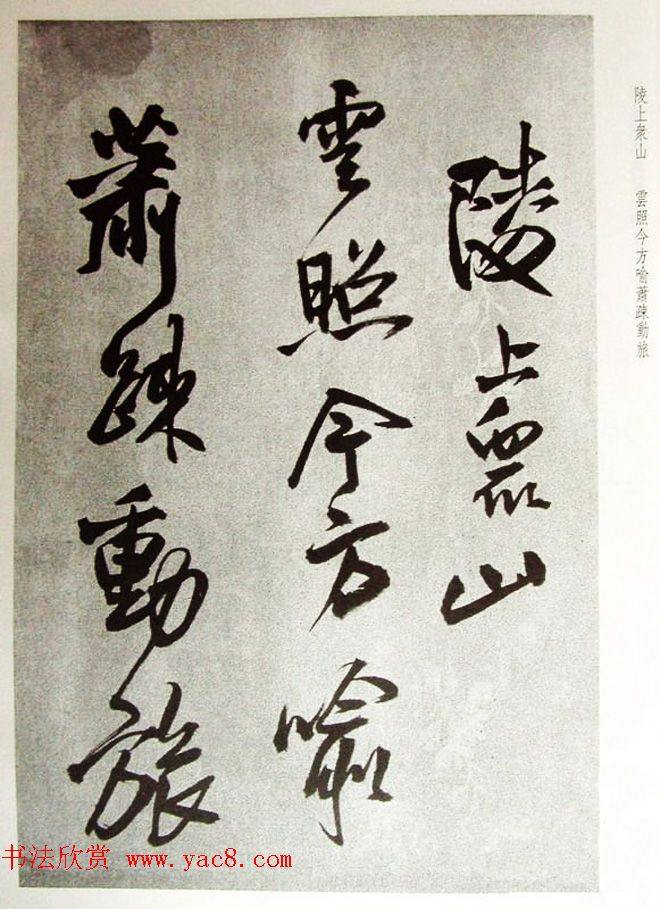 陵上眾山
雲照今方喻
蕭踈動旅
陵上眾山　雲照今方喻蕭踈動旅
书法欣赏 www.yac8.com